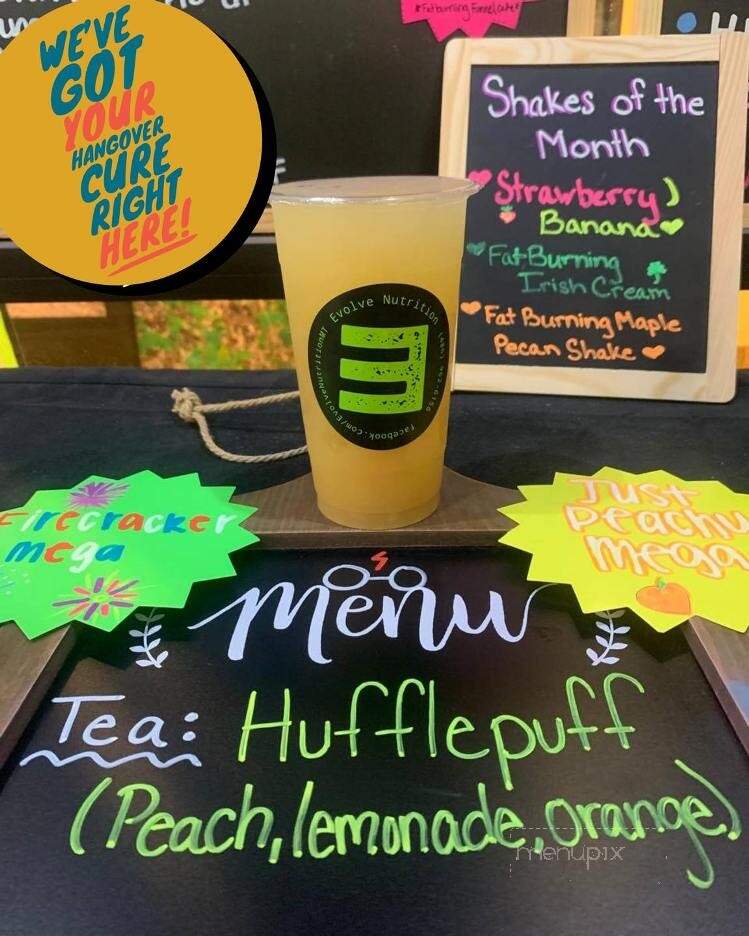 #Fatburning Funnelcake
WE'VE
GOT
YOUR
HANGOVER
CURE
RIGHT
HERE!
Shakes of the
Month
Strawberry
Banana
Fat-Burning
Irish Cream
Fat Burning Maple
Pecan Shake
Evolve Nutrition
Facebook.Com/EvolveNutritionMT
E
Firecracker
mega
Just
Peachy
mega
menu
Tea: Hufflepuff
(Peach, lemonade, orange)
menupix